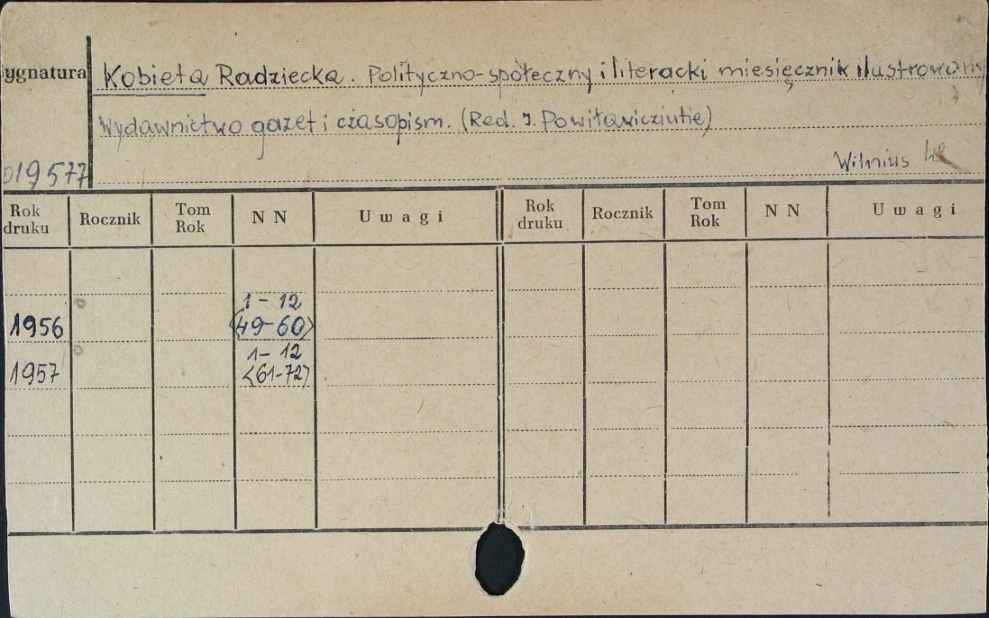 ygnatura Kobieta Radziecka. Polityczno-społeczny i literacki miesięcznik ilustrowany
Wydawnictwo gazet i czasopism. (Red. J. Powiławicziutie)
19577 Wilnius
Rok druku Rocznik Tom Rok N N Uwagi Rok druku Rocznik Tom Rok N N Uwagi
1-12
1956 <49-60>
1-12
1957 <61-72>